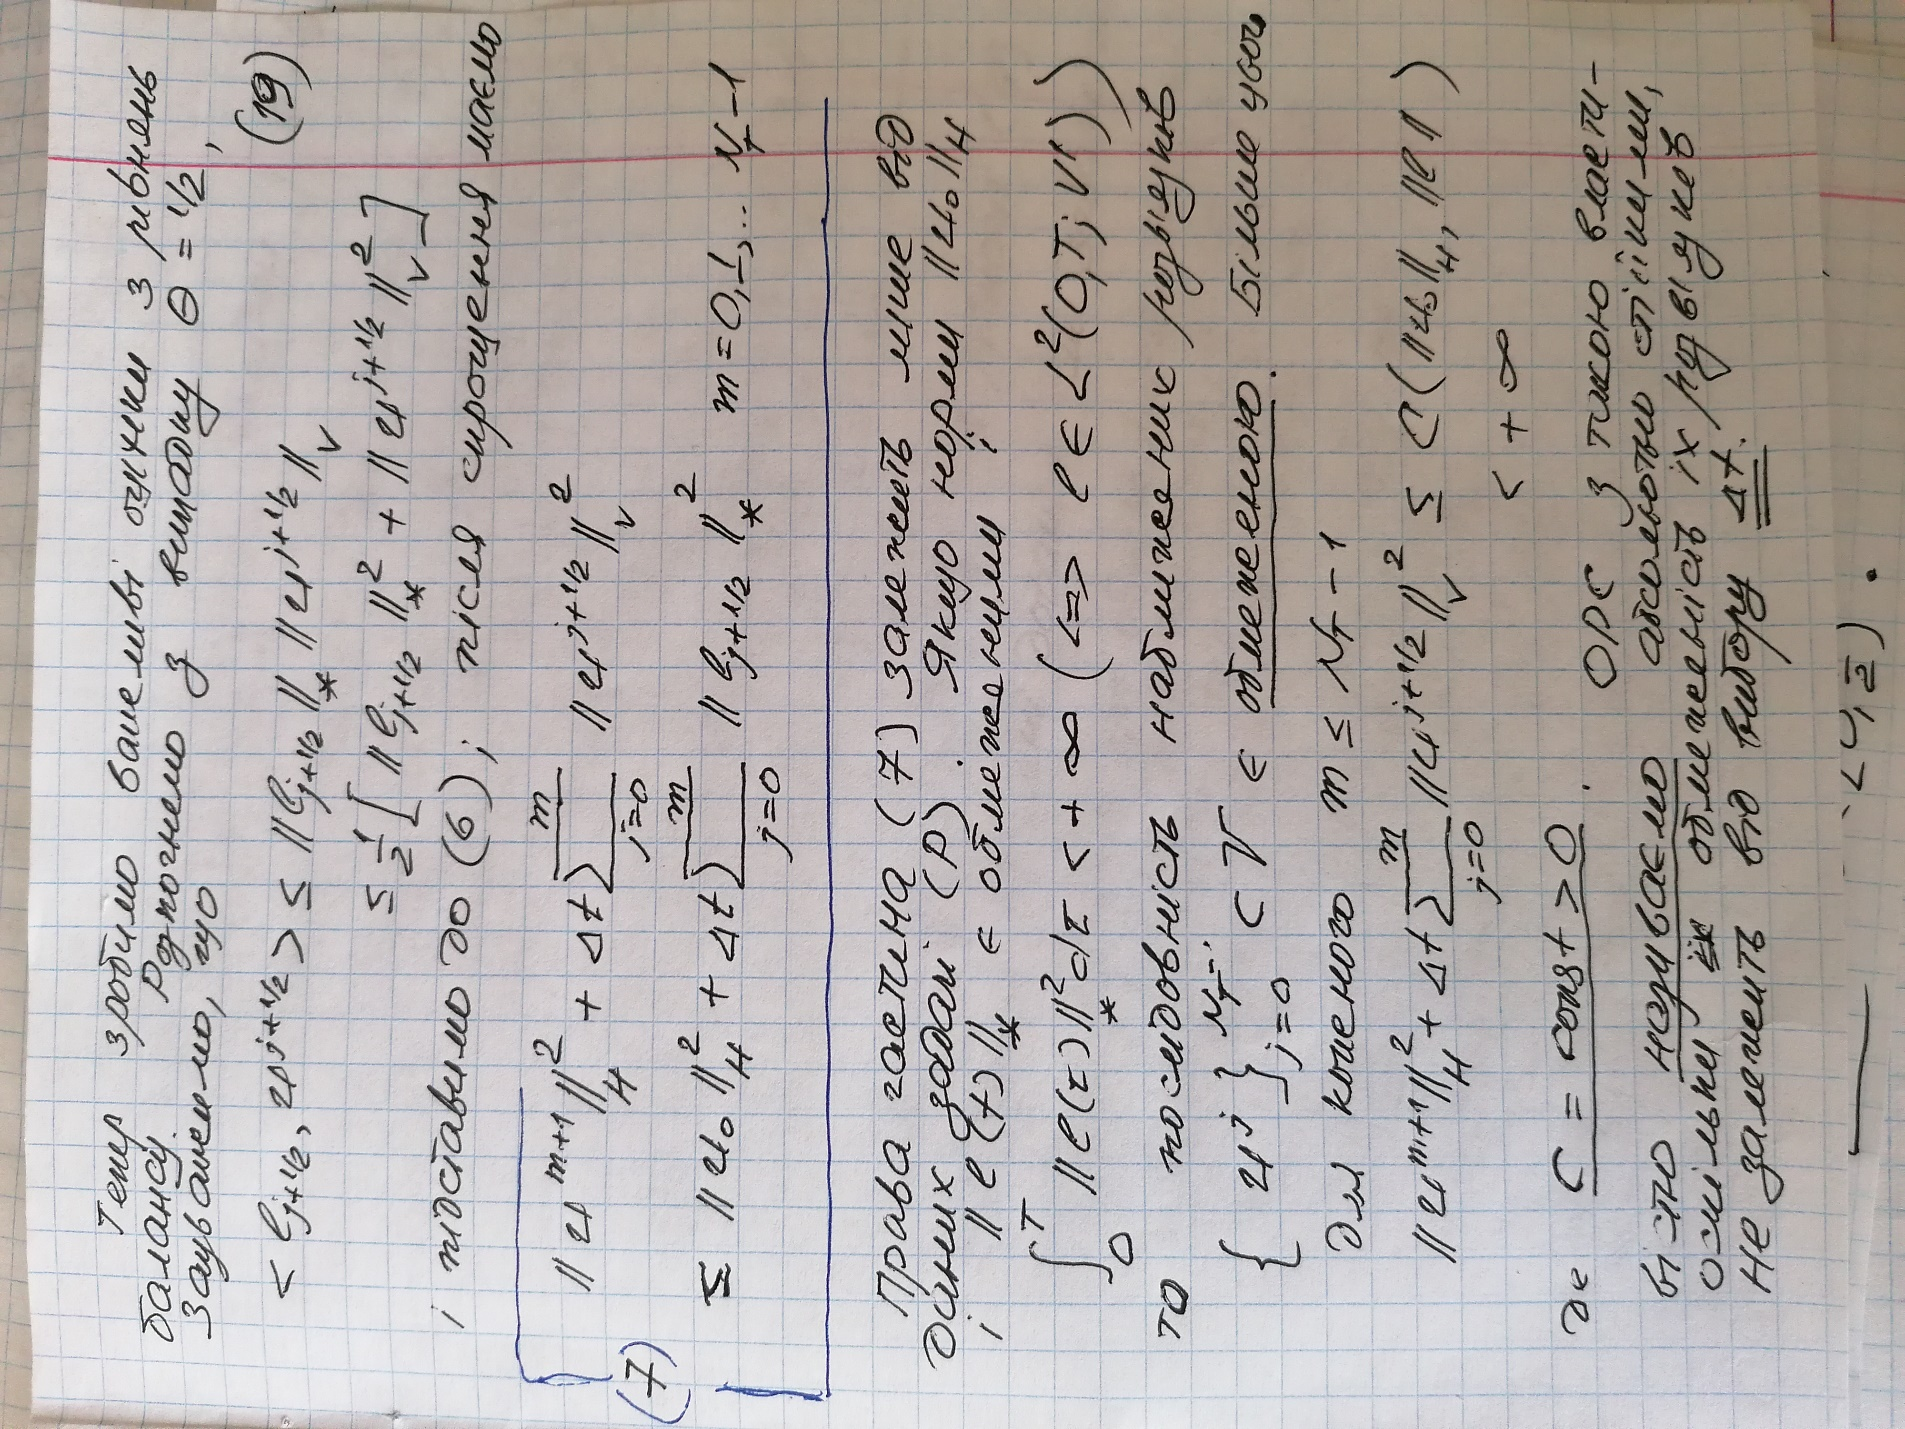 Тепер зробимо важливі оцінки з рівнень
балансу. Розпочнемо з випадку θ = 1/2,
Зауважемо, що (19)
< l_{j+1/2}, u^{j+1/2} > ≤ ||l_{j+1/2}||_* ||u^{j+1/2}||_V
≤ 1/2 [ ||l_{j+1/2}||_*^2 + ||u^{j+1/2}||_V^2 ]
і підставимо до (6); після спрощення маємо
||u^{m+1}||_H^2 + Δt ∑_{j=0}^{m} ||u^{j+1/2}||_V^2
(7)
≤ ||u_0||_H^2 + Δt ∑_{j=0}^{m} ||l_{j+1/2}||_*^2 m = 0, 1, … N_T – 1
Права частина (7) залежить лише від
даних задачі (P). Якщо норми ||u_0||_H
і ||l(t)||_* є обмеженими і
∫_0^T ||l(τ)||_*^2 dτ < + ∞ (<=> l ∈ L^2(0,T; V'))
то послідовність наближених розв'язків
{u^j}_{j=0}^{N_T} ⊂ V є обмеженою. Більше того,
Для кожного m ≤ N_T – 1
||u^{m+1}||_H^2 + Δt ∑_{j=0}^{m} ||u^{j+1/2}||_V^2 ≤ C(||u_0||_H, ||l||)
< + ∞
де C = const > 0. ОРС з такою власти-
вістю називаємо абсолютно стійкими,
оскільки обмеженість їх розв'язків
не залежить від вибору Δt.